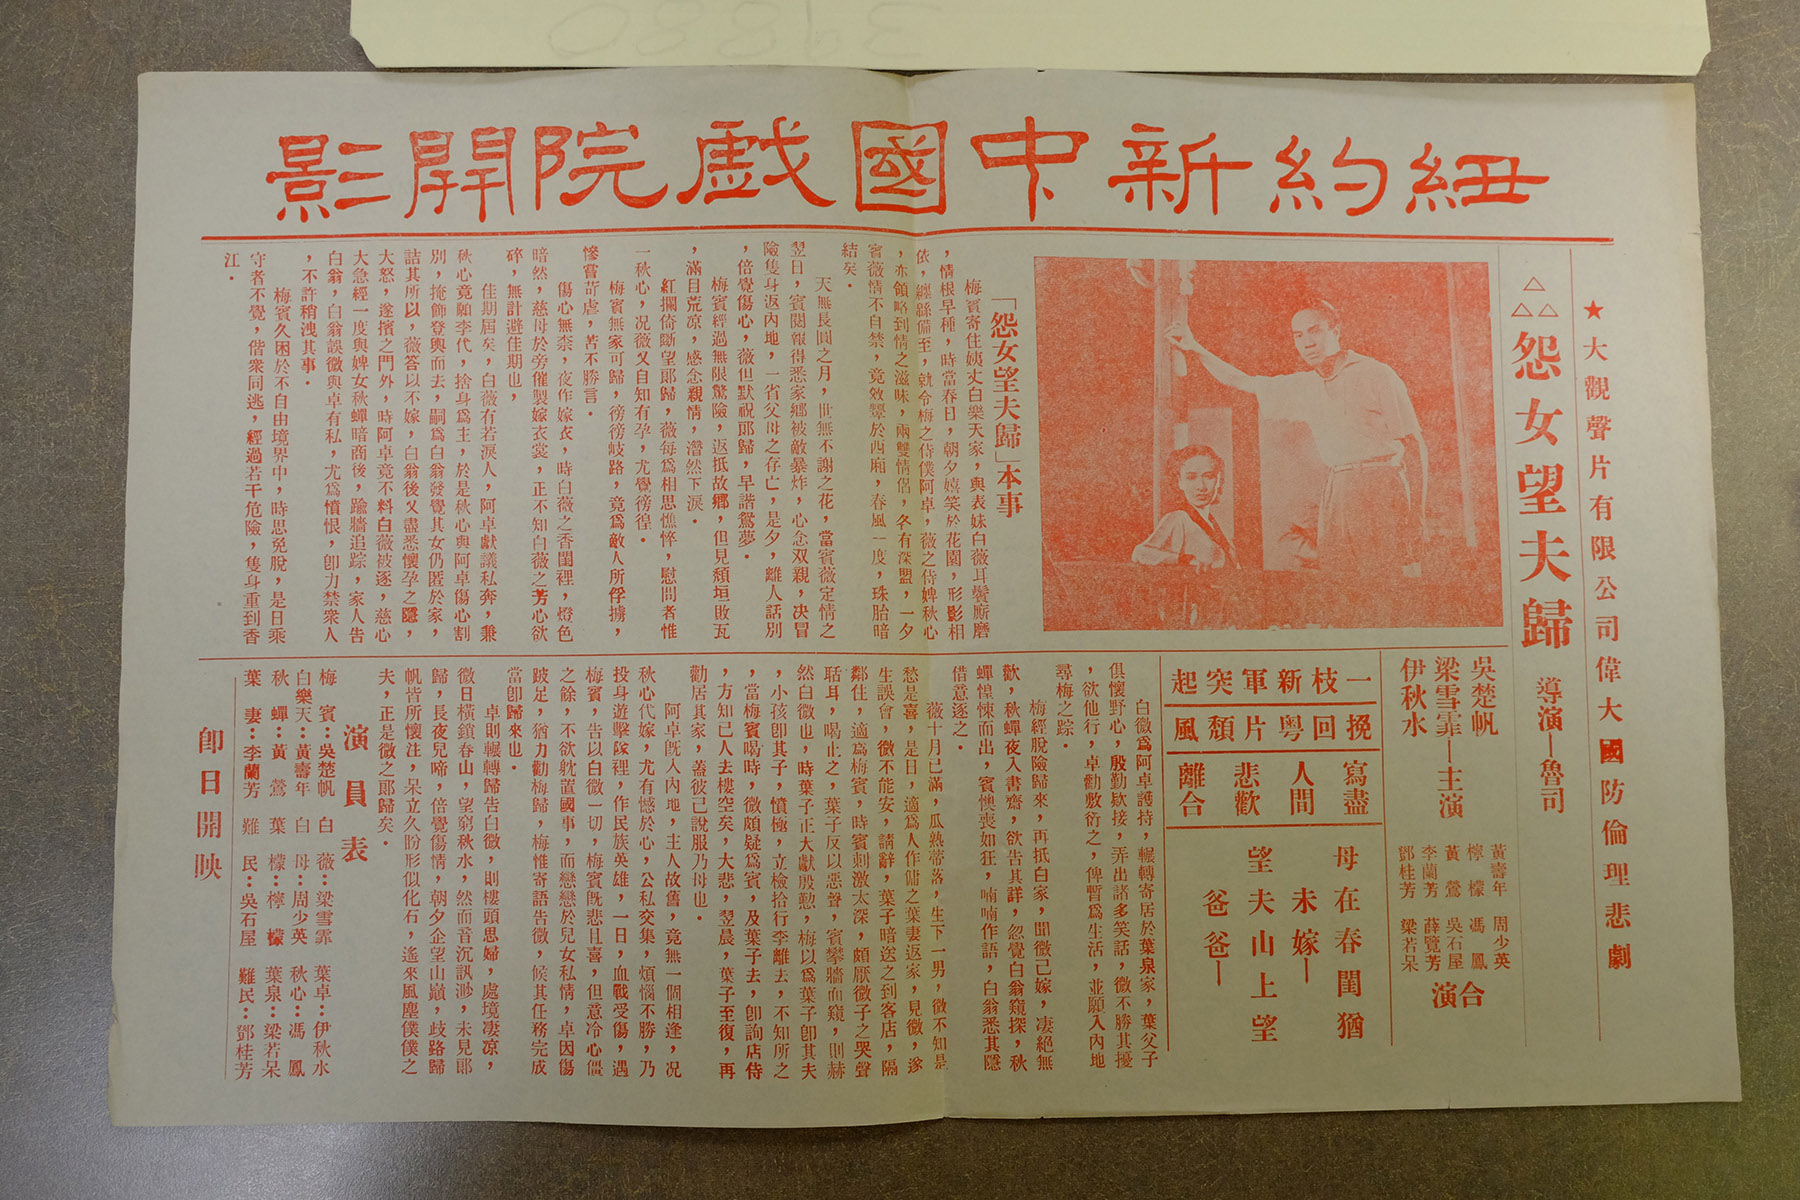 紐約新中國戲院開影
★大觀聲片有限公司偉大國防倫理悲劇
△△△怨女望夫歸
導演—魯司
吳楚帆
梁雪霏—主演
伊秋水
黃壽年 周少英
檸檬 馮鳳
黃鶯 吳石屋
李蘭芳 薛覽芳
鄧桂芳 梁若呆
合演
一枝新軍突起
挽回粵片頽風
寫盡人間悲歡離合
母在春閨猶未嫁—
望夫山上望爸爸—
「怨女望夫歸」本事
梅賓寄住姨丈白樂天家，與表妹白薇耳鬢廝磨
，情根早種，時當春日，朝夕嬉笑於花園，形影相
依，纏緜備至，就令梅之侍僕阿卓，薇之侍婢秋心
，亦領略到情之滋味，兩雙情侶，各有深盟，一夕
賓薇情不自禁，竟效顰於西廂，春風一度，珠胎暗
結矣．
天無長圓之月，世無不謝之花，當賓薇定情之
翌日，賓閱報得悉家鄉被敵暴炸，心念双親，决冒
險隻身返內地，一省父母之存亡，是夕，離人話別
，倍覺傷心，薇但默祝郎歸，早諧鴛夢．
梅賓經過無限驚險，返抵故鄉，但見頽垣敗瓦
，滿目荒凉，感念親情，潸然下淚．
紅攔倚斷望郎歸，薇每爲相思憔悴，慰問者惟
一秋心，况薇又自知有孕，尤覺徬徨．
梅賓無家可歸，徬徬岐路，竟爲敵人所俘擄，
慘嘗苛虐，苦不勝言．
傷心無柰，夜作嫁衣，時白薇之香閨裡，燈色
暗然，慈母於旁催製嫁衣裳，正不知白薇之芳心欲
碎，無計避佳期也，
佳期屆矣，白薇有若淚人，阿卓獻議私奔，兼
秋心竟願李代，捨身爲主，於是秋心與阿卓傷心割
別，掩飾登輿而去，嗣爲白翁發覺其女仍匿於家，
詰其所以，薇答以不嫁，白翁後又盡悉懷孕之隱，
大怒，遂擯之門外，時阿卓竟不料白薇被逐，慈心
大急經一度與婢女秋蟬暗商後，踰牆追踪，家人告
白翁，白翁誤微與卓有私，尤爲憤恨，卽力禁衆人
，不許稍洩其事．
梅賓久困於不自由境界中，時思免脫，是日乘
守者不覺，偕衆同逃，經過若干危險，隻身重到香
江．
白微爲阿卓護持，輾轉寄居於葉泉家，葉父子
俱懷野心，殷勤欵接，弄出諸多笑話，微不勝其擾
，欲他行，卓勸敷衍之，俾暫爲生活，並願入內地
尋梅之踪．
梅經脫險歸來，再抵白家，聞微己嫁，凄絕無
歡，秋蟬夜入書齋，欲告其詳，忽覺白翁窺探，秋
蟬惶悚而出，賓懊喪如狂，喃喃作語，白翁悉其隱
借意逐之．
薇十月已滿，瓜熟蒂落，生下一男，微不知是
愁是喜，是日，適爲人作傭之葉妻返家，見微，遂
生誤會，微不能安，請辭，葉子暗送之到客店，隔
鄰住，適爲梅賓，時賓刺激太深，頗厭微子之哭聲
聒耳，喝止之，葉子反以惡聲，賓攀牆而窺，則赫
然白微也，時葉子正大獻殷懃，梅以爲葉子卽其夫
，小孩卽其子，憤極，立檢拾行李離去，不知所之
，當梅賓喝時，微頗疑爲賓，及葉子去，卽詢店侍
，方知己人去樓空矣，大悲，翌晨，葉子至復，再
勸居其家，蓋彼已說服乃母也．
阿卓旣入內地，主人故舊，竟無一個相逢，况
秋心代嫁，尤有憾於心，公私交集，煩惱不勝，乃
投身遊擊隊裡，作民族英雄，一日，血戰受傷，遇
梅賓，告以白微一切，梅賓旣悲且喜，但意冷心僵
之餘，不欲躭置國事，而戀戀於兒女私情，卓因傷
跛足，猶力勸梅歸，梅惟寄語告微，候其任務完成
當卽歸來也．
卓則輾轉歸告白微，則樓頭思婦，處境凄凉，
微日橫鎖春山，望窮秋水，然而音沉訊渺，未見郎
歸，長夜兒啼，倍覺傷情，朝夕企望山巔，歧路歸
帆皆所懷注，呆立久盼形似化石，遙來風塵僕僕之
夫，正是微之郎歸矣．
演員表
梅賓：吳楚帆 白薇：梁雪霏 葉卓：伊秋水
白樂天：黃壽年 白母：周少英 秋心：馮鳳
秋蟬：黃鶯 葉檬：檸檬 葉泉：梁若呆
葉妻：李蘭芳 難民：吳石屋 難民：鄧桂芳
卽日開映